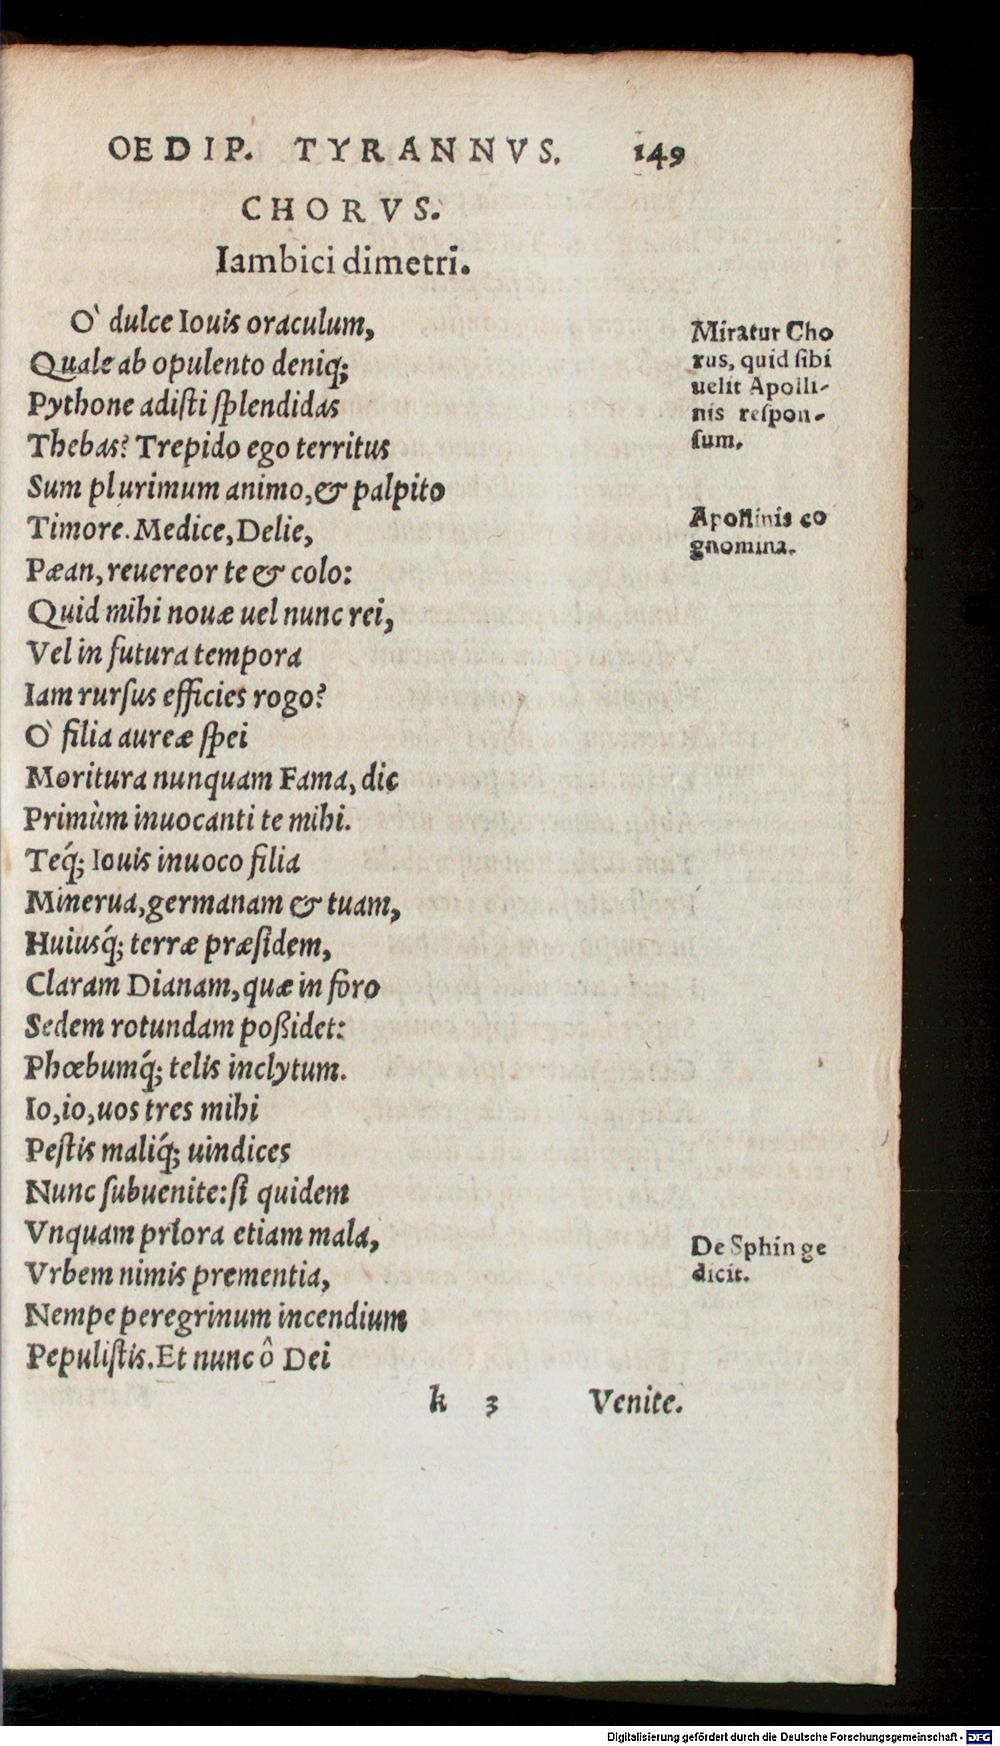 OEDIP. TYRANNVS. 149
CHORVS.
Iambici dimetri.
O` dulce Iouis oraculum,
Quale ab opulento deniq;
Pythone adiſti ſplendidas
Thebas? Trepido ego territus
Sum plurimum animo, & palpito
Timore. Medice, Delie,
Pæan, reuereor te & colo:
Quid mihi nouæ uel nunc rei,
Vel in futura tempora
Iam rurſus efficies rogo?
O` filia aureæ ſpei
Moritura nunquam Fama, dic
Primùm inuocanti te mihi.
Teq́; Iouis inuoco filia
Minerua, germanam & tuam,
Huiusq́; terræ præſidem,
Claram Dianam, quæ in foro
Sedem rotundam poßidet:
Phœbumq́; telis inclytum.
Io, io, uos tres mihi
Peſtis maliq́; uindices
Nunc ſubuenite: ſi quidem
Vnquam priora etiam mala,
Vrbem nimis prementia,
Nempe peregrinum incendium
Pepuliſtis. Et nunc ô Dei
k 3 Venite.
Miratur Cho
rus, quid ſibi
uelit Apolli-
nis reſpon-
ſum.
Apollinis co
gnomina.
De Sphinge
dicit.
Digitalisierung gefördert durch die Deutsche Forschungsgemeinschaft - DFG